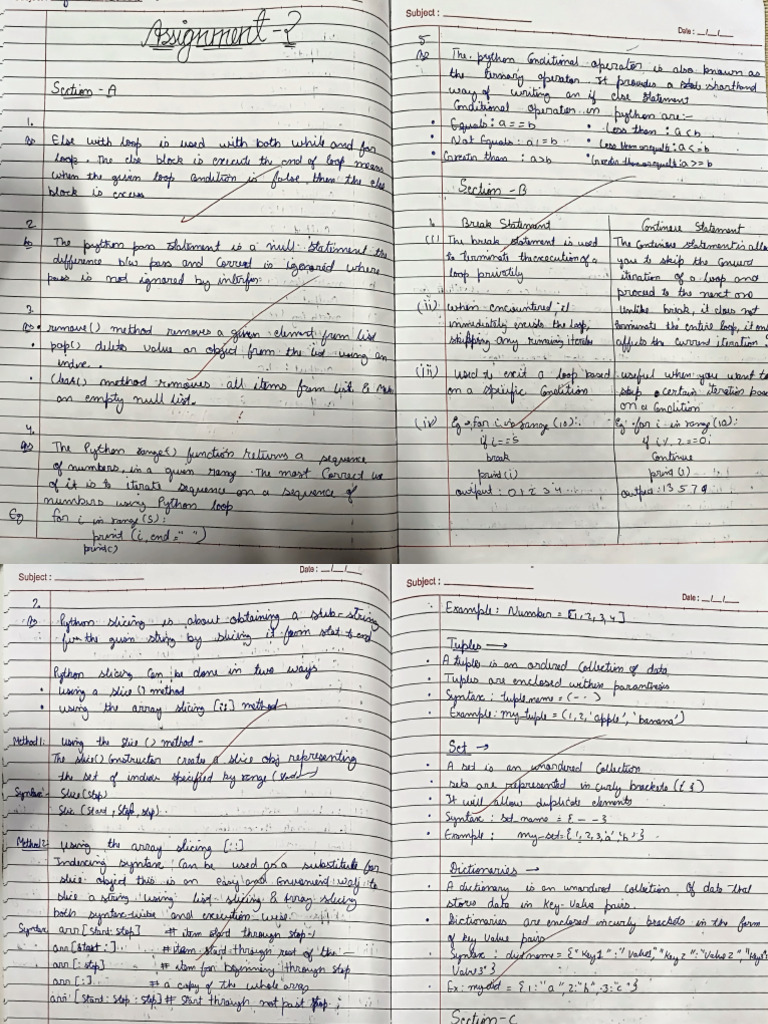 Assignment-2
Section - A
1.
Else with loop is used with both while and for
loop. The else block is execute the end of loop means
when the given loop condition is false, then the else
block is
2
The python pass statement is a null statement the
difference b/w pass and is ignored where
pass is not ignored by
3.
• remove() method removes a given element from list
• pop() delets value or object from the list using an
index.
• method removes all items from list &
an empty null list.
4.
The Python range() function returns a sequence
of numbers, in a given range. The most use
of it is to iterate sequence on a sequence of
numbers using Python loop
Eg for i in range(5):
print (i, end = " ")
print()
Subject :
Date : _/_/_
5
The python conditional operator is also known as
the ternary operator. It provides a shorthand
way of writing an if else statement
Conditional operator in python are :-
• Equals : a = = b • Less than : a < b
• Not Equals : a ! = b
• Greater than : a > b : a > = b
Section - B
Break Statement Continue Statement
(i) The break statement is used The continue statement is
to terminate the execution of a you to skip the
loop iteration of a loop and
proceed to the next one
(ii) when encountered, it unlike break, it does not
immediately the loop, the entire loop, it
skipping any affects the current iteration
(iii) used to exit a loop based useful when you want to
on a specific condition certain iteration
on a condition
(iv) Eg for i in range (10): Eg for i in range (10):
if i = = 5 if i % 2 = = 0:
break Continue
print(i) print(i)
output : 0 1 2 3 4 output : 1 3 5 7 9
Subject :
Date : _/_/_
2.
Python slicing is about obtaining a sub-string
the given string by slicing it
Python slicing can be done in two ways
• using a slice () method
• using the array slicing [::] method
Method 1: using the slice () method -
The slice() Constructor create a slice obj representing
the set of indices specified by range
Syntax:- Slice(stop)
Slic (start, stop, step).
Method 2: using the array slicing [::]
Indexing syntax can be used as a substitute for
slice object this is an easy and convenient way to
slice a string using list slicing & array slicing
both syntax-wise and execution wise.
Syntax arr [start stop] # item start through stop-1
arr [start :] # item start through rest of the
arr [: stop] # item for beginning through stop
arr [:] # a copy of the whole array
arr [start : stop : step] # start through not past stop
Subject :
Date : _/_/_
Example : Number = [1, 2, 3, 4]
Tuples →
• A tuple is an ordered collection of data
• Tuples are enclosed within paranthesis
• Syntax : tuple_name = (- - )
• Example : my_tuple = (1, 2, 'apple', 'banana')
Set →
• A set is an unordered collection
• sets are represented in curly brackets ({ })
• It will allow duplicate elements
• Syntax : set_name = { - - }
• Example : my_set = {1, 2, 3, 'a', 'b'}
Dictionaries →
• A dictionary is an unordered collection of data that
stores data in key-value pairs.
• Dictionaries are enclosed in curly brackets in the form
of key value pairs
• Syntax : dict name = {"Key1" : "Value1", "Key2" : "Value2", "Key3" :
Value3"}
• Ex : = {1 : "a", 2 : "b", 3 : "c"}
Section-C